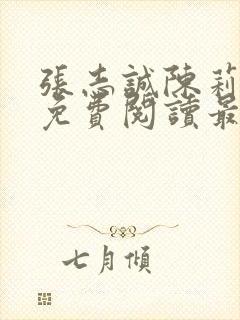 張志誠陳莉
免費閱讀最
七月傾